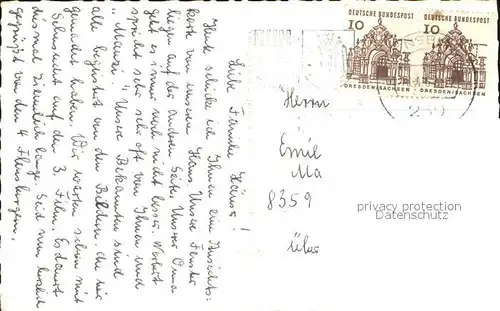 Liebe Familie
Heute schicke ich Ihnen eine Ansichts-
karte von unserem Haus. Unsere Fenster
liegen auf der anderen Seite. Unserer Oma
geht es immer noch nicht besser. Norbert
spricht sehr, sehr oft von Ihnen und
"Mauzi". Unsere Bekannten sind
alle begeistert von den Bildern, die wir
gemacht haben. Wir warten schon mit
Sehnsucht auf den 3. Film. Es dauert
diesmal ziemlich lange. Seid nun herzlich
gegrüßt von den 4 Flensburgern.
DEUTSCHE BUNDESPOST
10
DRESDEN/SACHSEN
DEUTSCHE BUNDESPOST
10
DRESDEN/SACHSEN
Herrn
Emil
Ma
8359
über
privacy protection
watermark